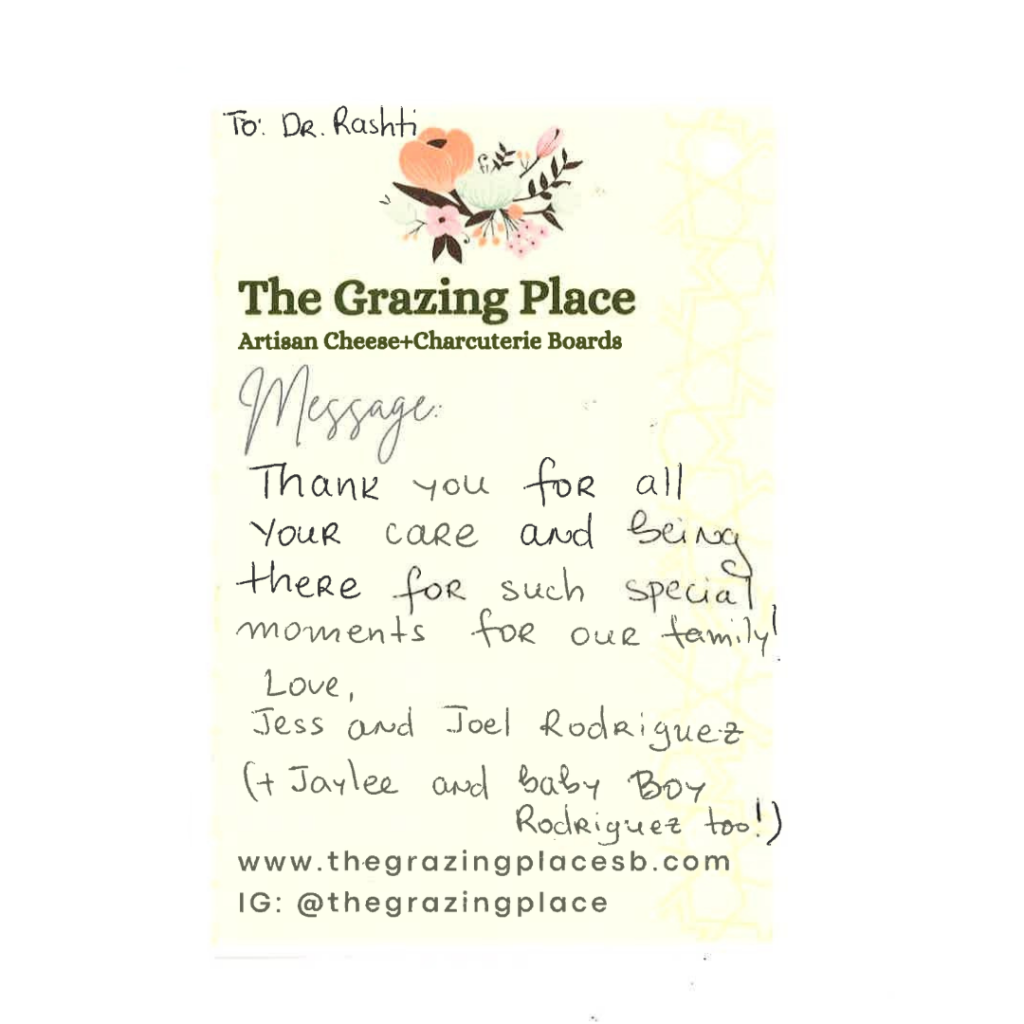 To: Dr. Rashti
The Grazing Place
Artisan Cheese+Charcuterie Boards
Message:
Thank you for all
your care and being
there for such special
moments for our family!
Love,
Jess and Joel Rodriguez
(+ Jaylee and baby Boy
Rodriguez too!)
www.thegrazingplacesb.com
IG: @thegrazingplace